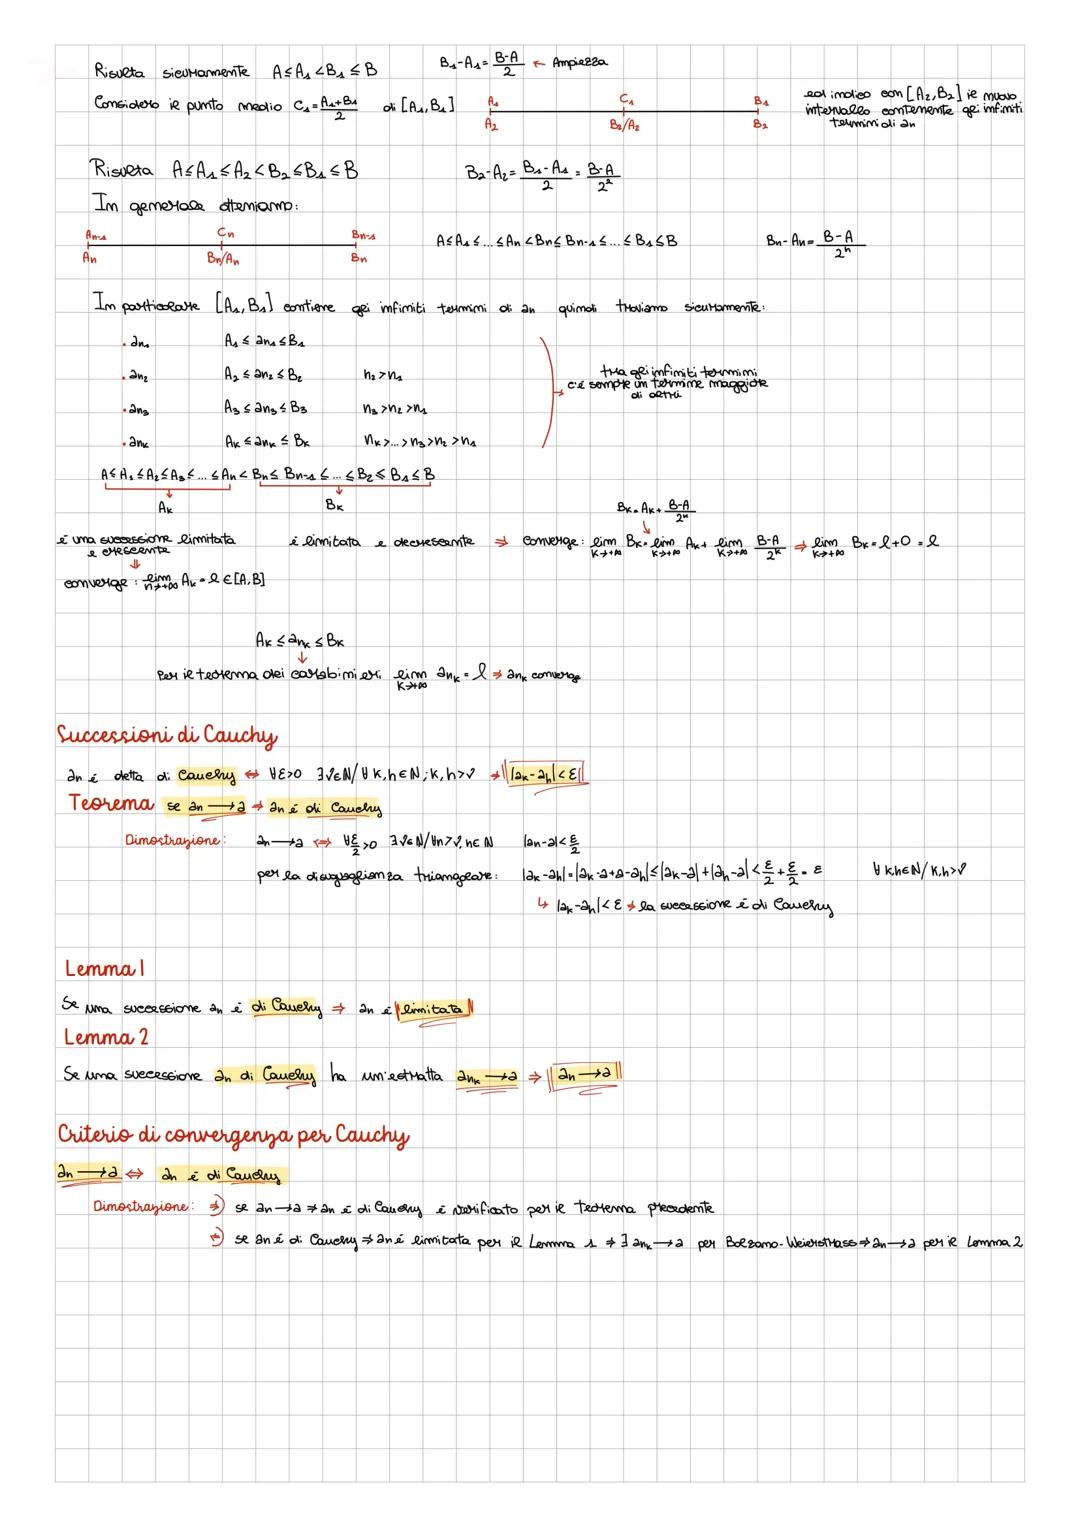 Risulta sicuramente A≤A₁<B₁≤B B₁-A₁=(B-A)/2 ← Ampiezza
Considero il punto medio C₁=(A₁+B₁)/2 di [A₁,B₁]
A₁ C₁ B₁
A₂ B₂/A₂ B₂
ed indico con [A₂,B₂] il nuovo
intervallo contenente gli infiniti
termini di an
Risulta A≤A₁≤A₂<B₂≤B₁≤B B₂-A₂=(B₁-A₁)/2=(B-A)/2²
In generale otteniamo:
An-1 Cn Bn-1
An Bn/An Bn
A≤A₁≤...≤An<Bn≤Bn-1≤...≤B₁≤B Bn-An=(B-A)/2ⁿ
In particolare [A₁,B₁] contiene gli infiniti termini di an quindi troviamo sicuramente:
• an₁ A₁≤an₁≤B₁
• an₂ A₂≤an₂≤B₂ n₂>n₁
• an₃ A₃≤an₃≤B₃ n₃>n₂>n₁
• ank Ak≤ank≤Bk nk>...>n₃>n₂>n₁
tra gli infiniti termini
c'è sempre un termine maggiore
di altri
A≤A₁≤A₂≤A₃≤...≤An<Bn≤Bn-1≤...≤B₂≤B₁≤B
↓ Ak ↓ Bk
Bk=Ak+(B-A)/2ᵏ
↓
è una successione limitata
e crescente
⇓
converge: lim n→+∞ Ak=l∈[A,B]
è limitata e decrescente ⇒ converge: lim k→+∞ Bk=lim k→+∞ Ak+lim k→+∞ (B-A)/2ᵏ ⇒ lim k→+∞ Bk=l+0=l
Ak≤ank≤Bk
↓
Per il teorema dei carabinieri lim k→+∞ ank=l ⇒ ank converge
Successioni di Cauchy
an è detta di Cauchy ⇔ ∀ε>0 ∃ν∈N/∀k,h∈N; k,h>ν ⇒ |ak-ah|<ε
Teorema se an→a ⇒ an è di Cauchy
Dimostrazione: an→a ⇔ ∀ε/2>0 ∃ν∈N/∀n>ν, n∈N |an-a|<ε/2
per la disuguaglianza triangolare: |ak-ah|=|ak-a+a-ah|≤|ak-a|+|ah-a|<ε/2+ε/2=ε ∀k,h∈N/k,h>ν
↳ |ak-ah|<ε ⇒ la successione è di Cauchy
Lemma 1
Se una successione an è di Cauchy ⇒ an è limitata
Lemma 2
Se una successione an di Cauchy ha un'estratta ank→a ⇒ an→a
Criterio di convergenza per Cauchy
an→a ⇔ an è di Cauchy
Dimostrazione: ⇒) se an→a ⇒ an è di Cauchy è verificato per il teorema precedente
⇐) se an è di Cauchy ⇒ an è limitata per il Lemma 1 ⇒ ∃ ank→a per Bolzano-Weierstrass ⇒ an→a per il Lemma 2